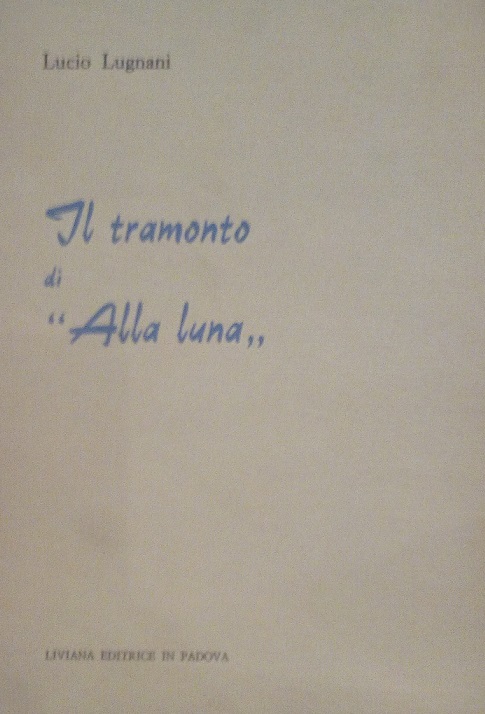 Lucio Lugnani
Il tramonto
di
“Alla luna„
LIVIANA EDITRICE IN PADOVA